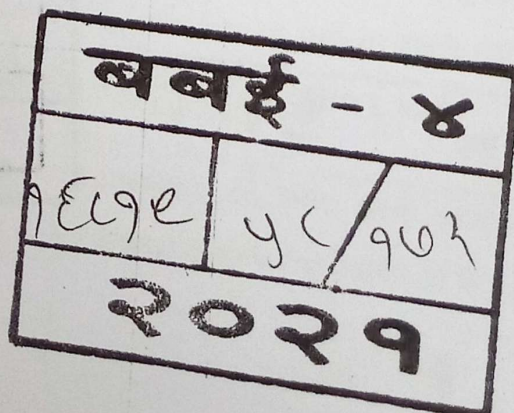 बबई - ४
१६८१९ ५८/१७२
२०२१